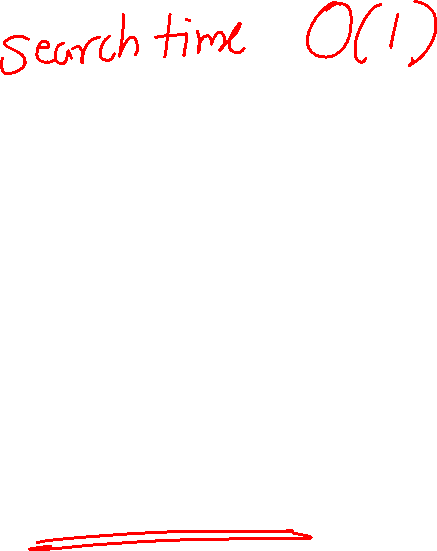 search time O(1)